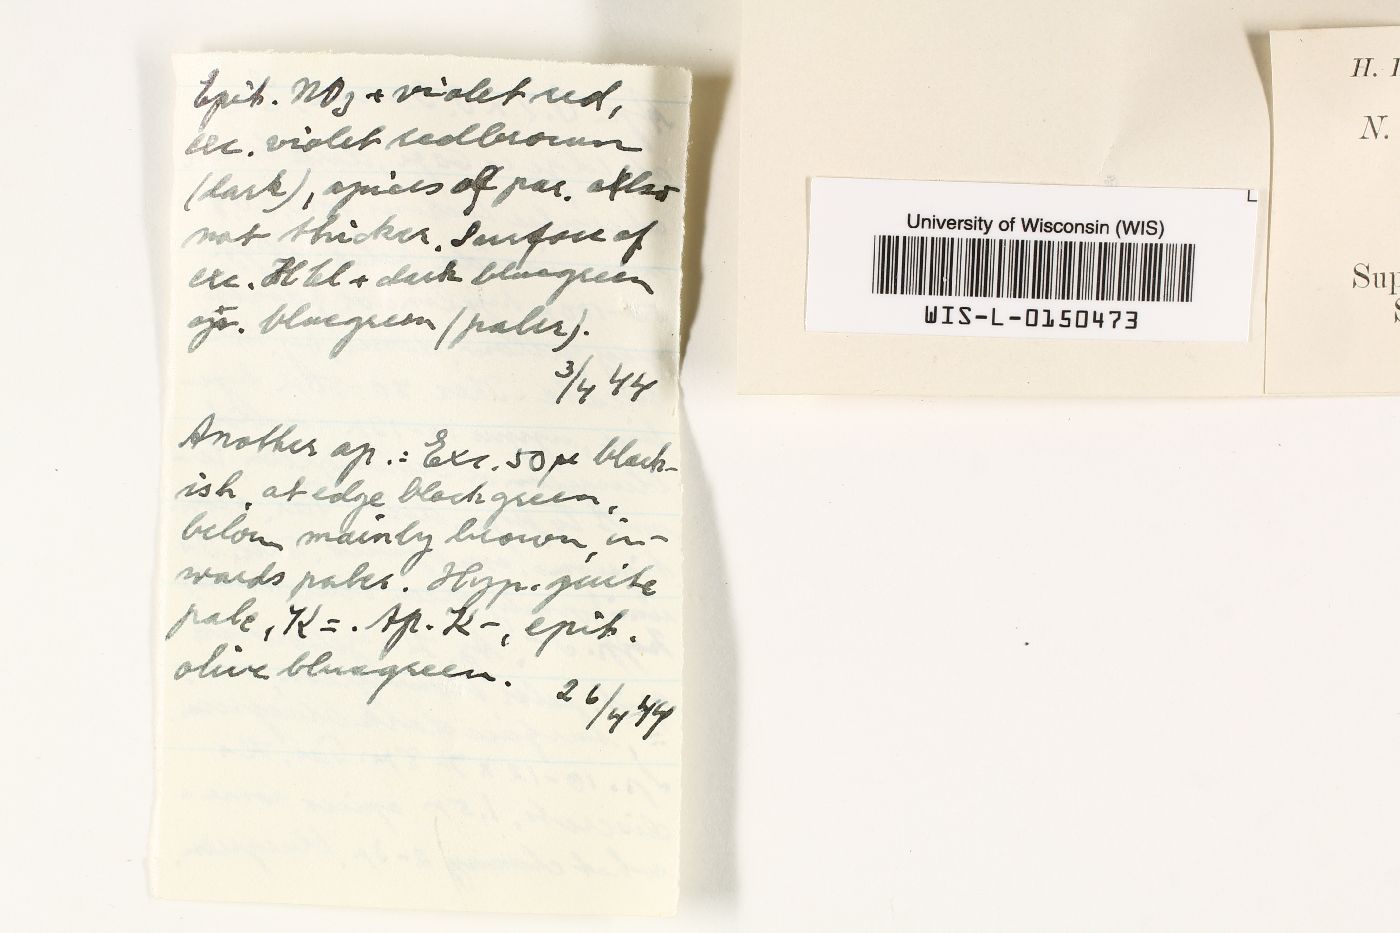 Epit. NO3 + violet red,
exc. violet redbrown
(dark), apices of par. also
not thicker. Surface of
exc. HCl + dark bluegreen
ep. bluegreen (paler).
3/4 44
Another ap.: Exc. 50 µ black-
ish, at edge blackgreen,
below mainly brown, in-
wards paler. Hyp. quite
pale, K=. Ap. K-, epit.
olive bluegreen.
26/4 44
University of Wisconsin (WIS)
WIS-L-0150473
L
H.
N.
Sup